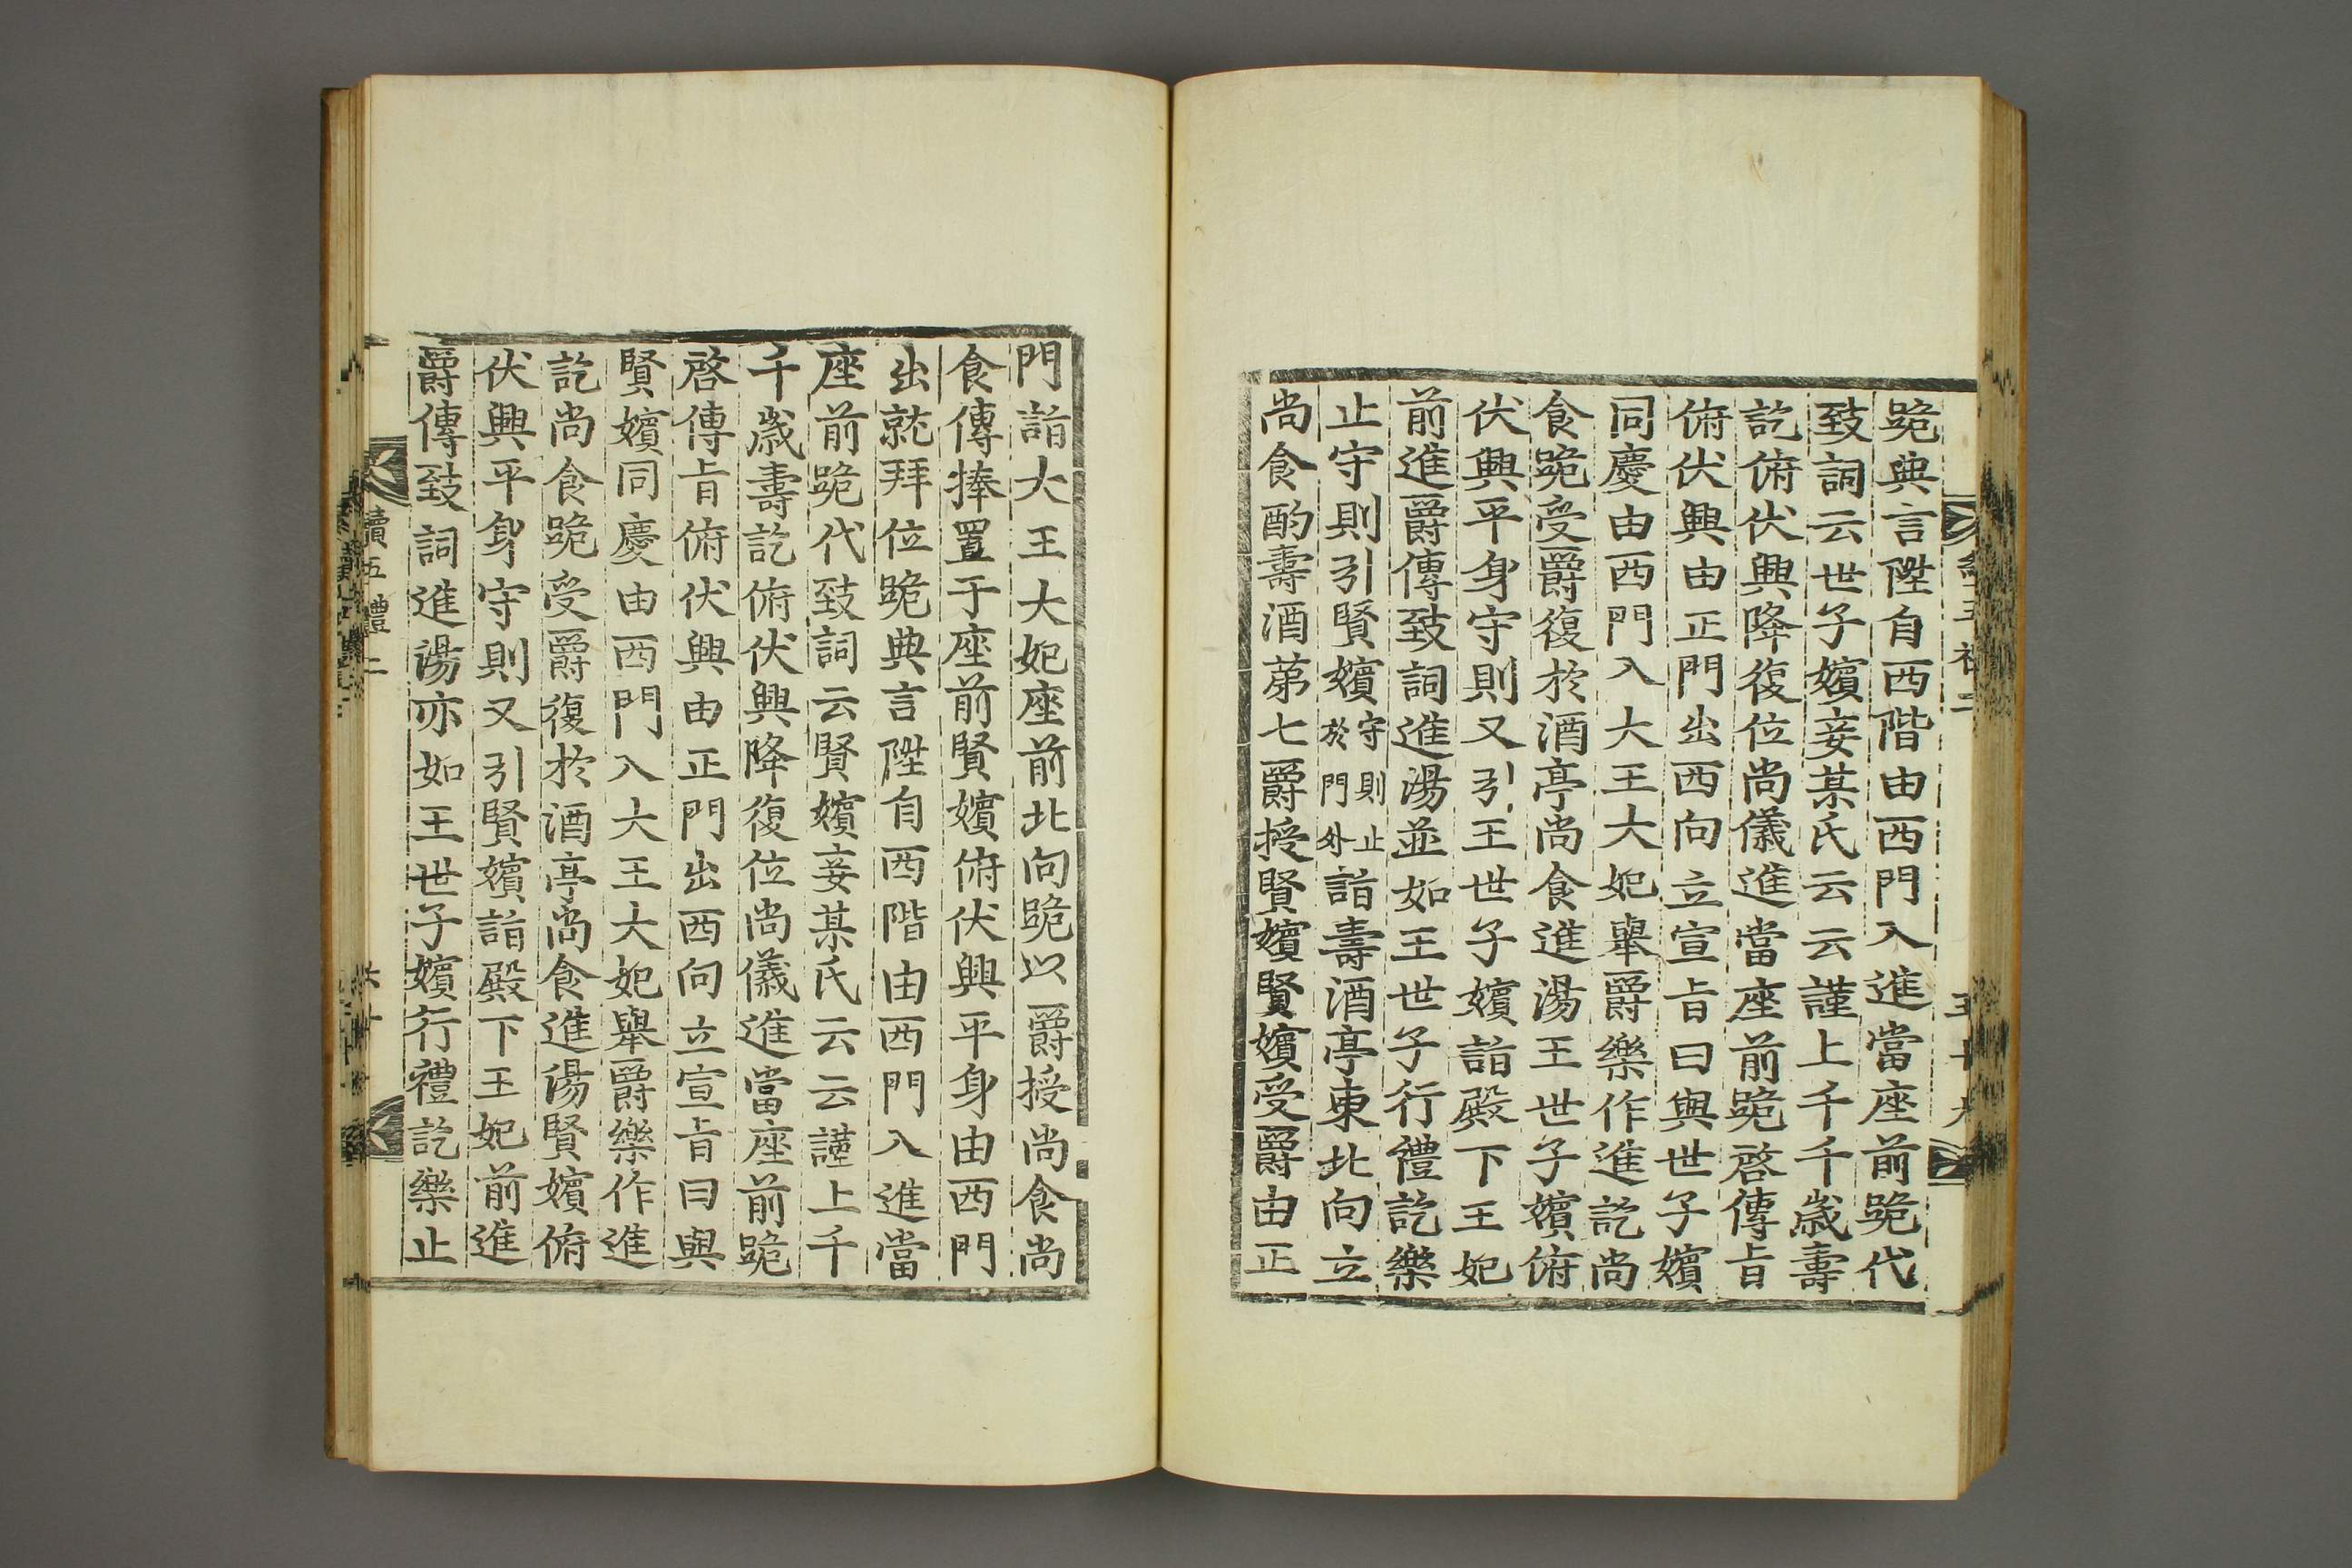 跪典言陞自西階由西門入進當座前跪代
致詞云世子嬪妾某氏云云謹上千千歲壽
訖俯伏興降復位尚儀進當座前跪啓傳旨
俯伏興由正門出西向立宣旨曰與世子嬪
同慶由西門入大王大妃舉爵樂作進訖尚
食跪受爵復於酒亭尚食進湯王世子嬪俯
伏興平身守則又引王世子嬪詣殿下王妃
前進爵傳致詞進湯並如王世子行禮訖樂
止守則引賢嬪守則止於門外詣壽酒亭東北向立
尚食酌壽酒第七爵授賢嬪賢嬪受爵由正
門詣大王大妃座前北向跪以爵授尚食尚
食傳捧置于座前賢嬪俯伏興平身由西門
出就拜位跪典言陞自西階由西門入進當
座前跪代致詞云賢嬪妾某氏云云謹上千
千歲壽訖俯伏興降復位尚儀進當座前跪
啓傳旨俯伏興由正門出西向立宣旨曰與
賢嬪同慶由西門入大王大妃舉爵樂作進
訖尚食跪受爵復於酒亭尚食進湯賢嬪俯
伏興平身守則又引賢嬪詣殿下王妃前進
爵傳致詞進湯亦如王世子嬪行禮訖樂止
續五禮二